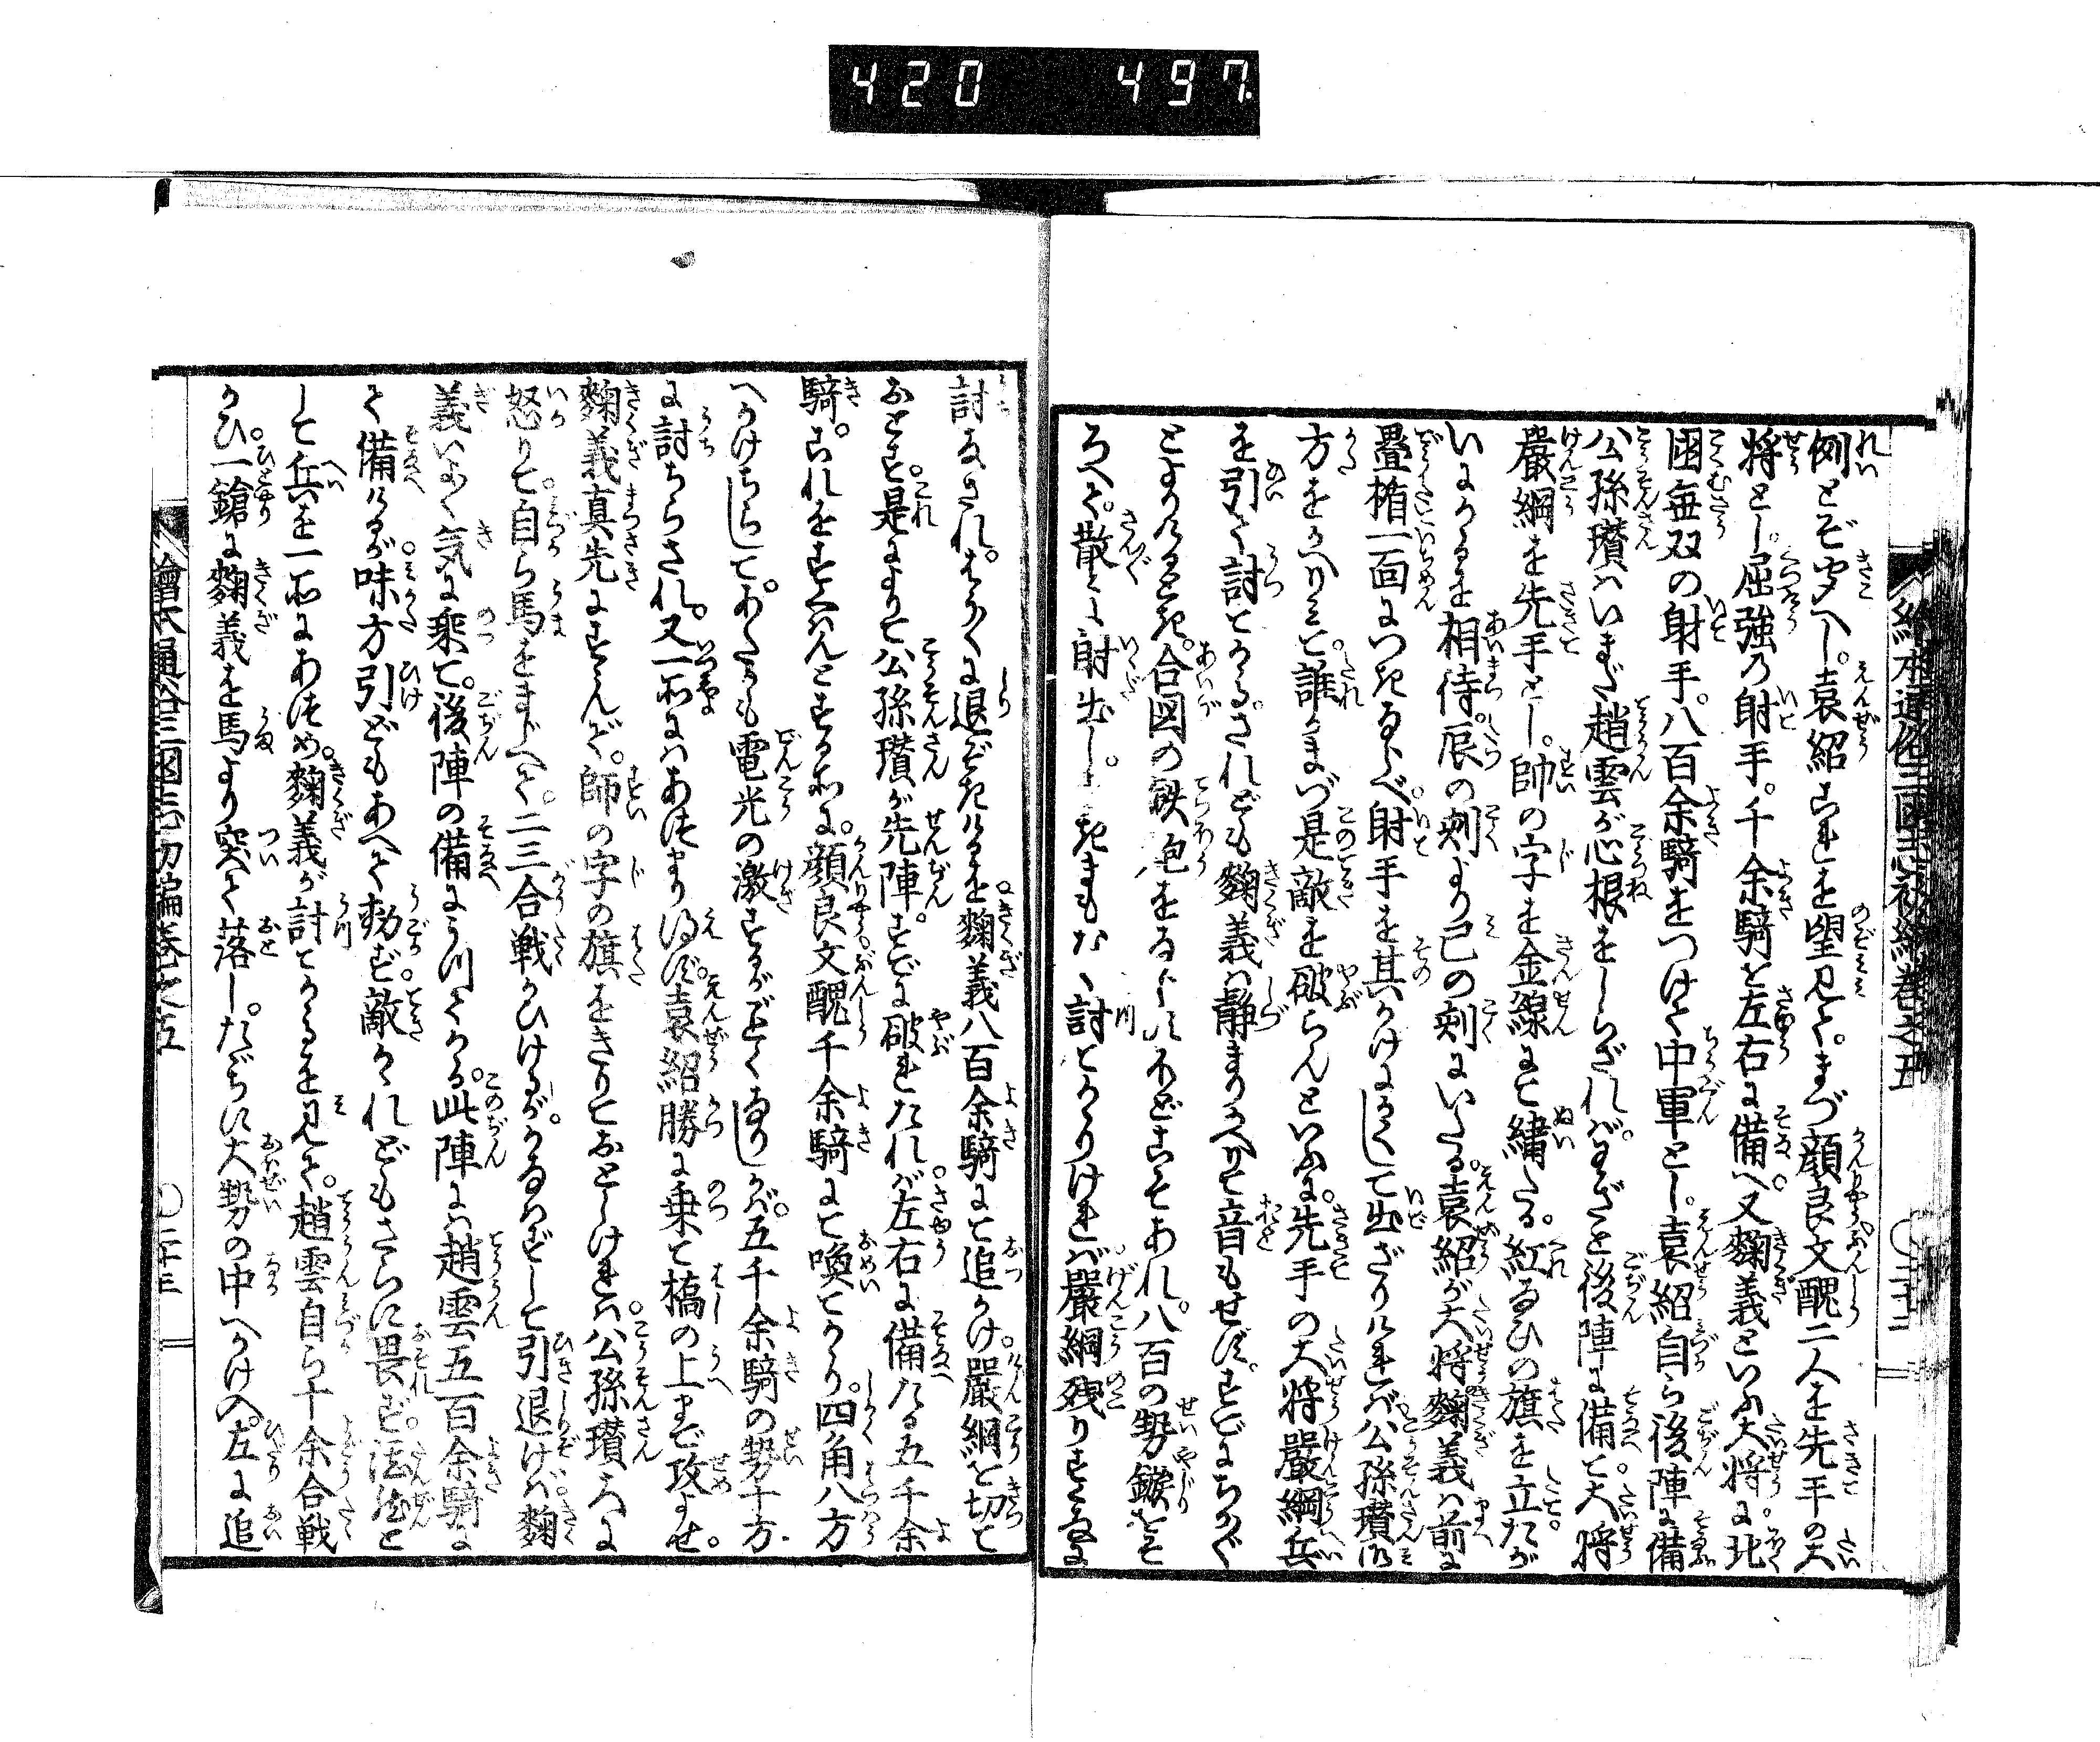 420 497
絵本通俗三國志初編巻之五 〇二十二
例とぞ聞へし。袁紹これを望見て。まづ顔良文醜二人を先手の大
将とし。屈強の射手。千余騎を左右に備へ。又麴義といふ大将に。北
国無双の射手。八百余騎をつけて中軍とし。袁紹自ら後陣に備
公孫瓚ハいまだ趙雲が心根をしらざれバ。わざと後陣に備へて大将
嚴綱を先手とし。帥の字を金線にて繍たる。紅ゐひの旗を立たが
いにかゝるを相待。辰の刻より己の刻にいたる。袁紹が大将麴義ハ前に
畳楯一面につきならべ。射手を其かけにかくして出ざりけれバ公孫瓚味
方をかへりミて。誰かまづ是敵を破らんといふに。先手の大将嚴綱兵
を引て討とかゝる。されども麴義ハ静まりかへりて音もせず。すでにちかぐ
とよりけるとき。合図の鉄炮をならすほどこそあれ。八百の勢鏃をそ
ろへて。散々に射出し。すきまもなく討とかゝりけれバ。嚴綱残りすくなに
討なされ。はやく退ぞきけるを。麴義八百余騎にて追かけ。嚴綱を切て
おとす。是によりて公孫瓚が先陣。すでに破れたれバ。左右に備たる五千余
騎。これをすくハんとする所に。顔良文醜千余騎にて喚てかゝり。四角八方
へかけちらして。あたかも電光の激するがごとくなりしかバ。五千余騎の勢十方
に討ちらされ。又一所にハあつまり得ず。袁紹勝に乗て橋の上まで攻よせ。
麴義真先にすゝんで。帥の字の旗をきりておとしけれハ。公孫瓚大に
怒りて。自ら馬をまじへて。二三合戦かひけるが。かなハずして引退けバ。麴
義いよ〱気に乗て。後陣の備にうつてかゝる。此陣にハ趙雲五百余騎に
て備けるが。味方引どもあへて動ず。敵かゝれどもさらに畏ず。
して兵を一所にあつめ。麴義が討てかゝるを見て。趙雲自ら十余合戦
かひ。一鎗に麴義を馬より突て落し。たゞちに大勢の中へかけ入。左に追
繪本通俗三國志初編巻之五 〇二十三